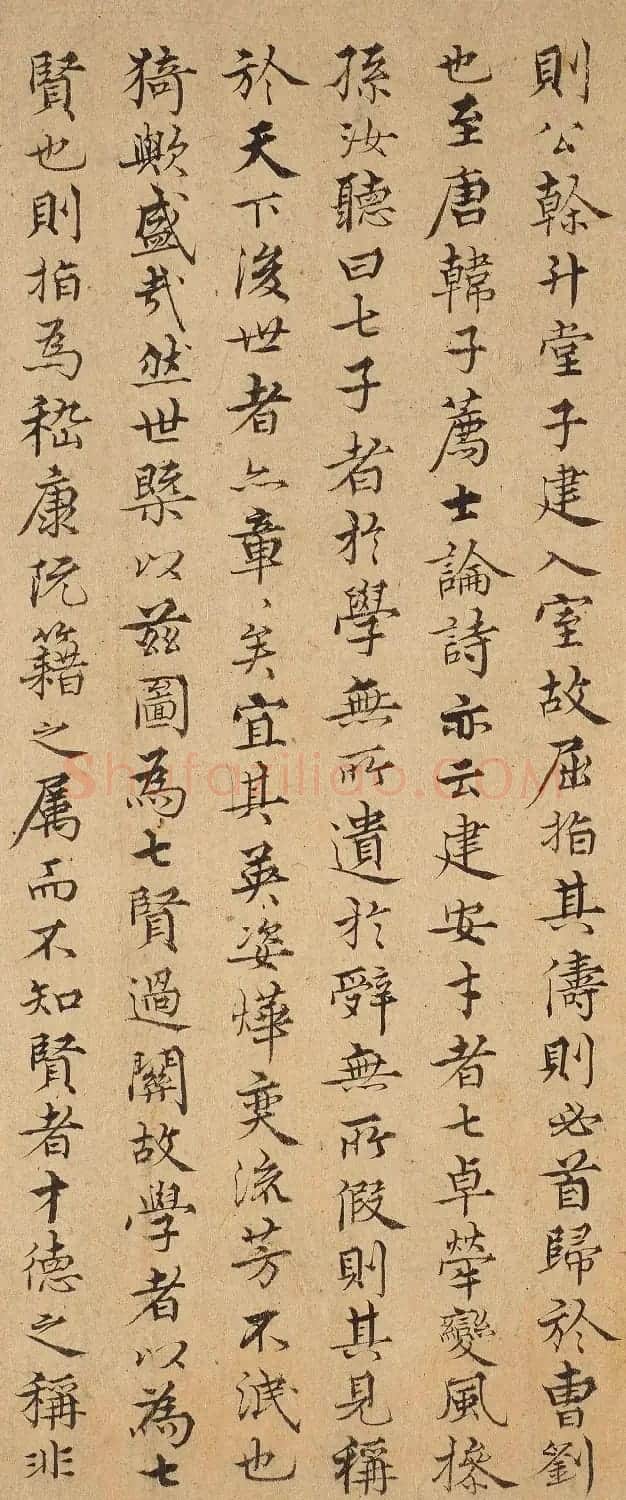 則公幹升堂子建入室故屈指其儔則必首歸於曹劉
也至唐韓子薦士論詩亦云建安才者七卓犖變風操
孫汝聽曰七子者於學無所遺於辭無所假則其見稱
於天下後世者亦章〻矣宜其英姿燁奕流芳不泯也
猗歟盛哉然世槩以茲圖為七賢過關故學者以為七
賢也則指為嵇康阮籍之属而不知賢者才德之稱非
Shufaziliao.COM